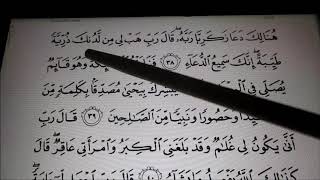 هُنَالِكَ دَعَا زَكَرِيَّا رَبَّهُۥ ۖ قَالَ رَبِّ هَبْ لِى مِن لَّدُنكَ ذُرِّيَّةً
طَيِّبَةً ۖ إِنَّكَ سَمِيعُ ٱلدُّعَآءِ ٣٨ وَهُوَ قَآئِمٌ
يُصَلِّى فِى يُبَشِّرُكَ بِيَحْيَىٰ مُصَدِّقًۢا بِكَلِمَةٍ مِّنَ
وَحَصُورًا وَنَبِيًّا مِّنَ ٱلصَّٰلِحِينَ ٣٩ قَالَ رَبِّ
أَنَّىٰ يَكُونُ لِى غُلَٰمٌ وَقَدْ بَلَغَنِىَ ٱلْكِبَرُ وَٱمْرَأَتِى عَاقِرٌ ۖ قَالَ